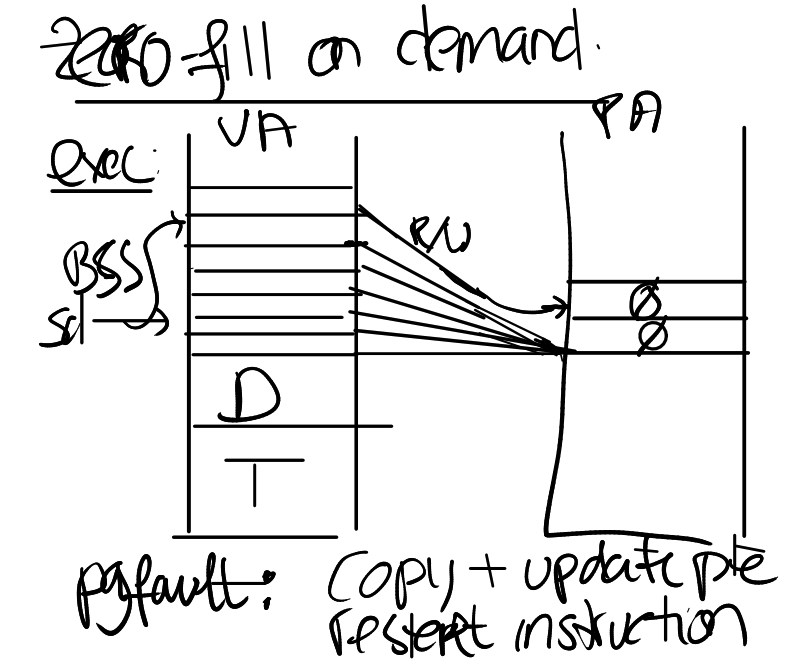 zero-fill on demand.
VA
PA
exec:
R/W
BSS
Ø
sd
Ø
D
T
pgfault: copy + update pte
restart instruction